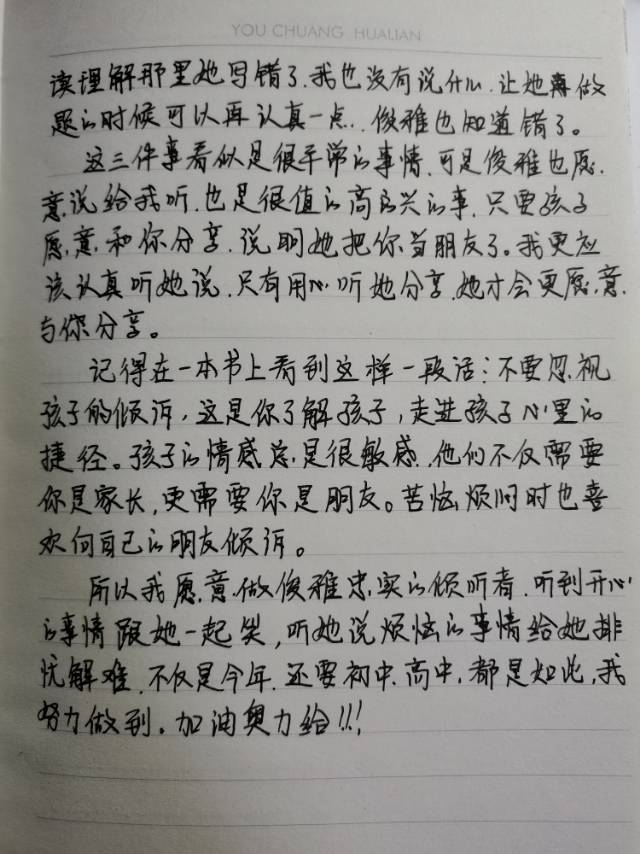 YOU CHUANG HUALIAN
读理解那里她写错了.我也没有说什么.让她再做
题的时候可以再认真一点.俊雅也知道错了。
这三件事看似是很平常的事情.可是俊雅也愿
意说给我听.也是很值的高兴的事.只要孩子
愿意和你分享.说明她把你当朋友了。我更应
该认真听她说.只有用心听她分享.她才会更愿意
与你分享。
记得在一本书上看到这样一段话:不要忽视
孩子的倾诉,这是你了解孩子,走进孩子心里的
捷径。孩子的情感总是很敏感.他们不仅需要
你是家长,更需要你是朋友。苦恼烦闷时也喜
欢向自己的朋友倾诉。
所以我愿意做俊雅忠实的倾听者.听到开心
的事情跟她一起笑,听她说烦恼的事情给她排
忧解难.不仅是今年.还要初中.高中,都是如此,我
努力做到。加油奥力给!!!